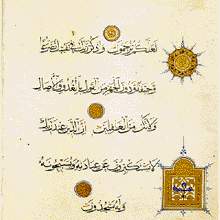 لعلكم ترحمون واذكر ربك في نفسك تضرعا
وخيفة ودون الجهر من القول بالغدو والآصال
ولا تكن من الغفلين ان الذين عند ربك
لا يستكبرون عن عبادته ويسبحونه
وله يسجدون